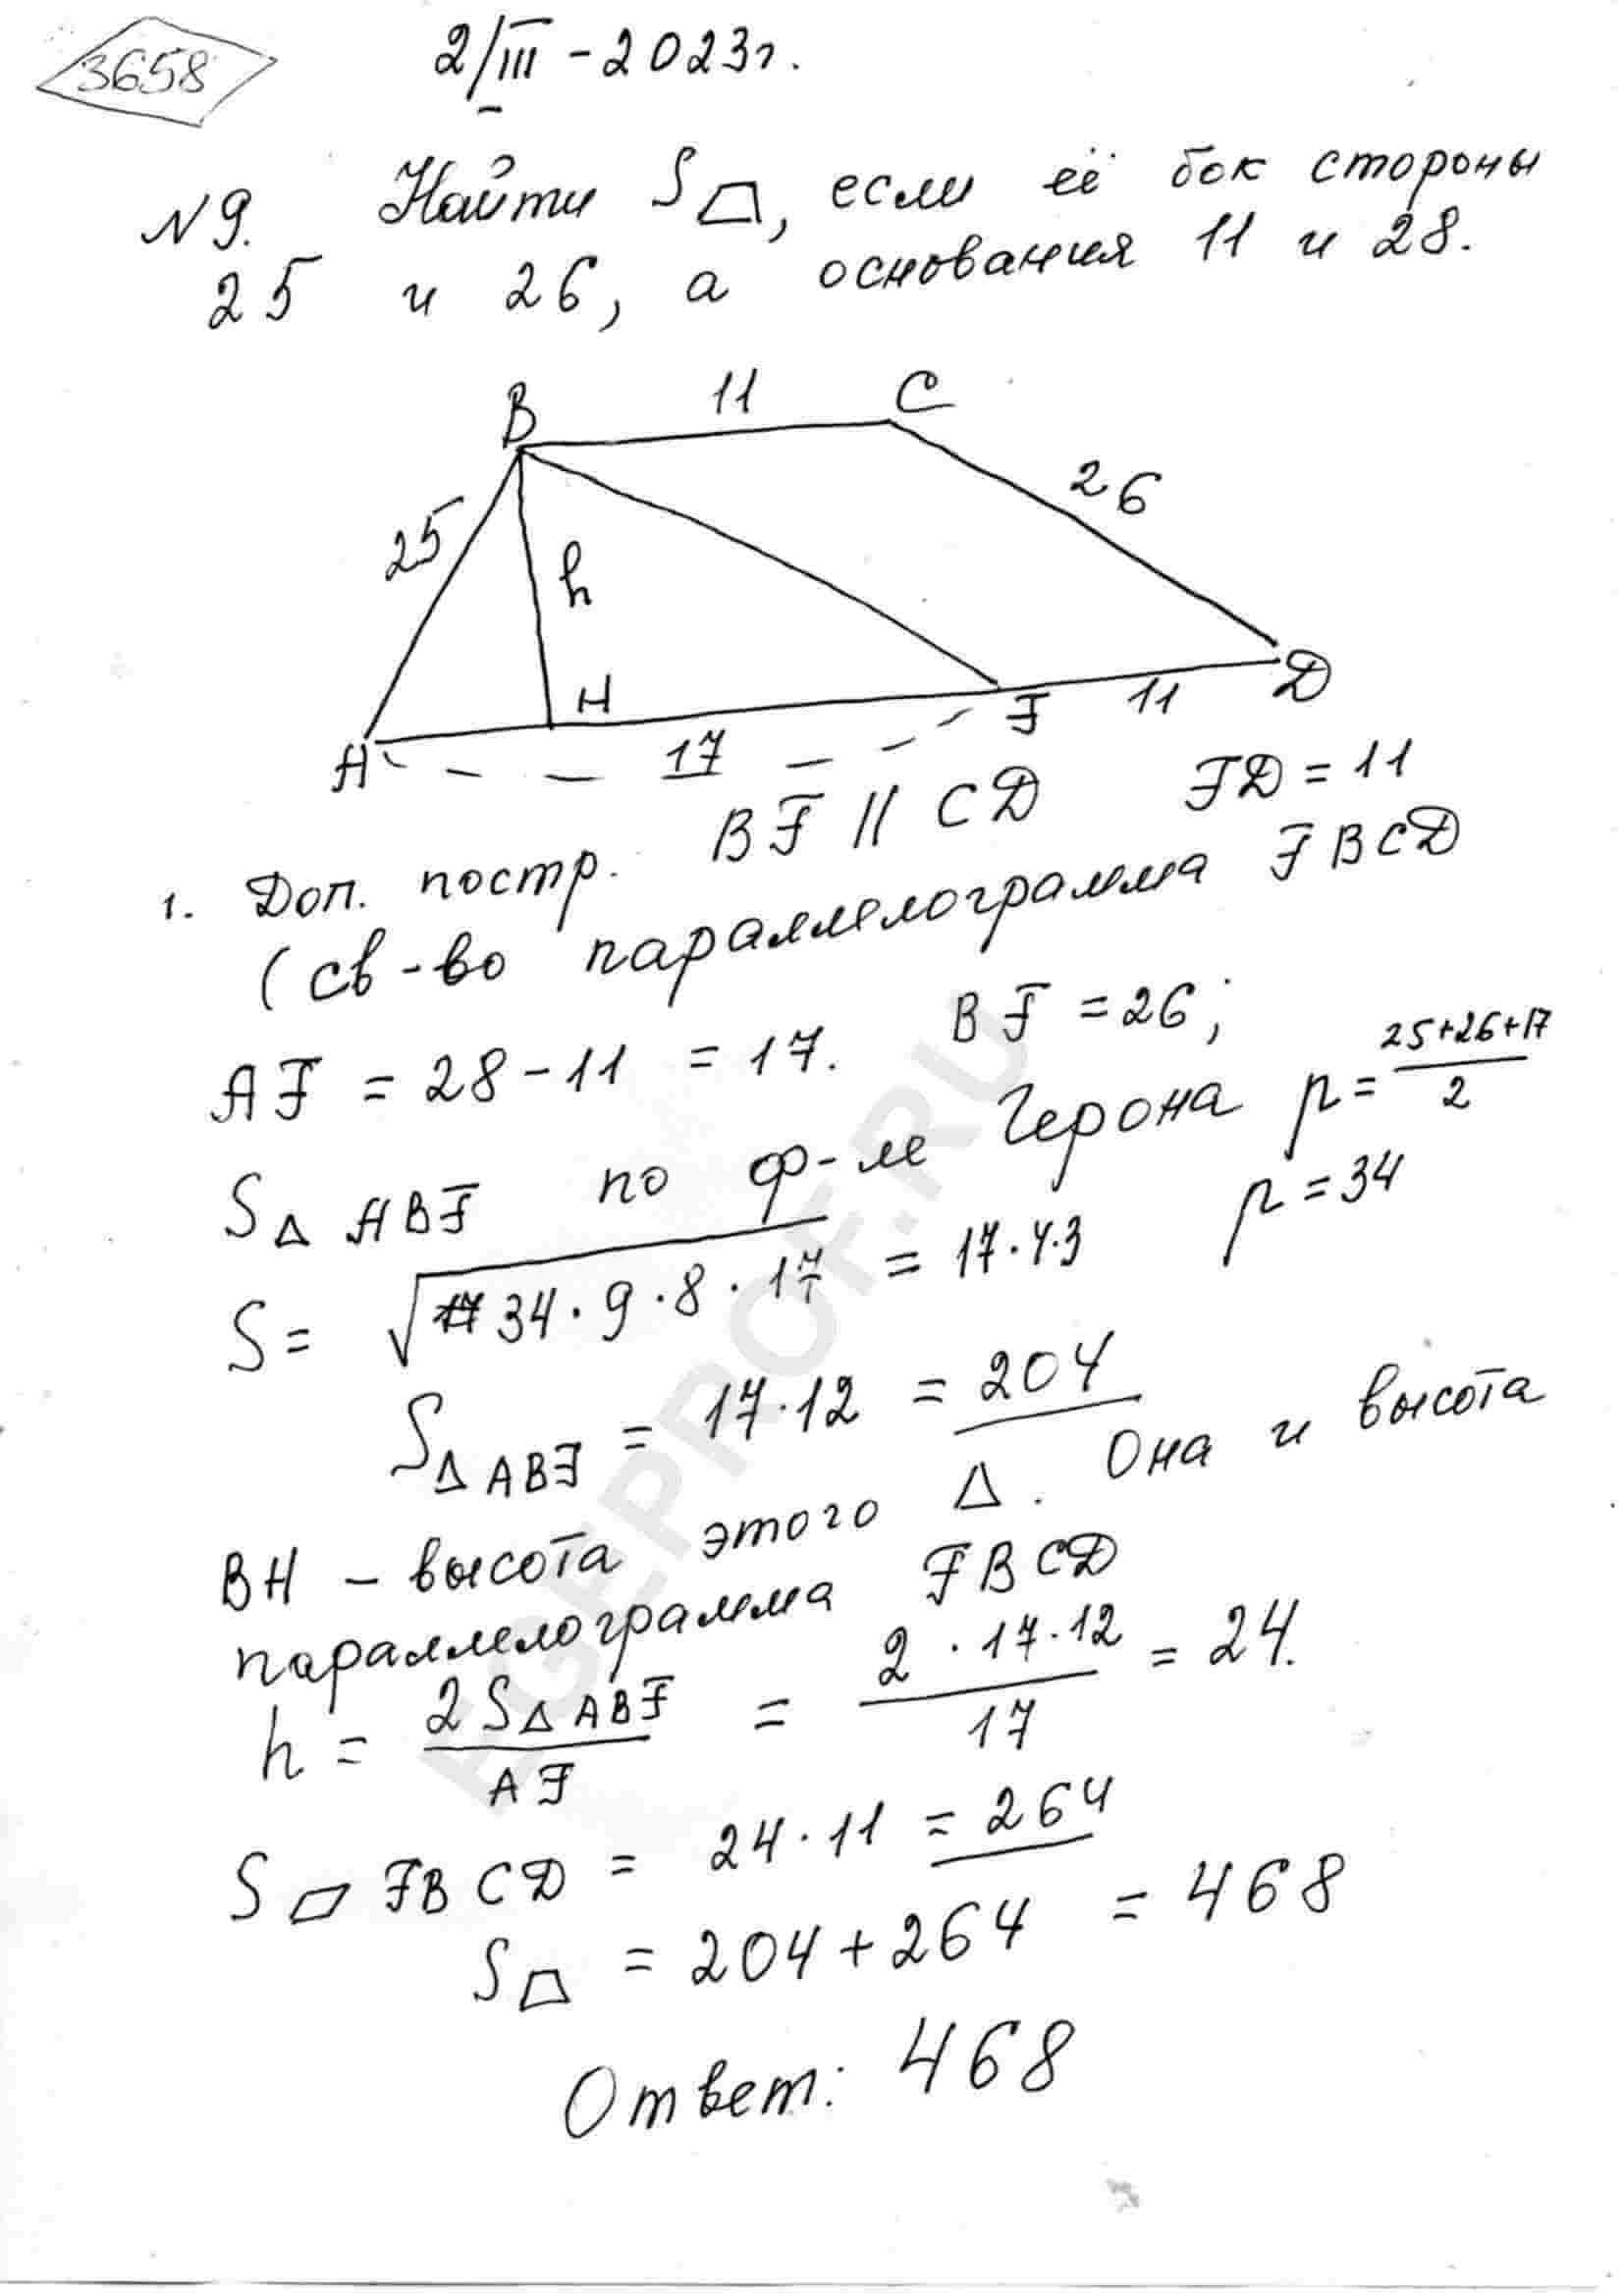 3658
2/III - 2023г.
N9. Найти S, если её бок стороны
25 и 26, а основания 11 и 28.
B 11 C
25 h 26
A H 17 F 11 D
1. Доп. постр. BF || CD FD = 11
(св-во параллелограмма FBCD
AF = 28 - 11 = 17. BF = 26;
S△ ABF по ф-ле Герона p = (25+26+17)/2
p = 34
S = √34·9·8·17 = 17·4·3
S△ABF = 17·12 = 204
BH - высота этого △. Она и высота
параллелограмма FBCD
h = 2S△ABF / AF = 2·17·12 / 17 = 24.
S▱ FBCD = 24·11 = 264
S = 204 + 264 = 468
Ответ: 468
EGEPROF.RU